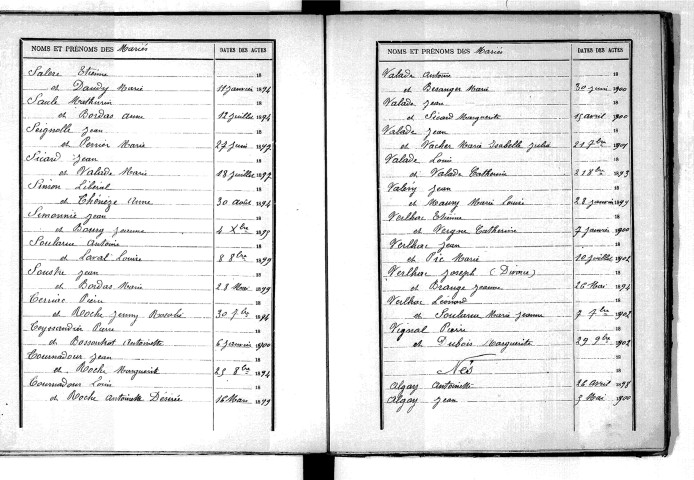 NOMS ET PRÉNOMS DES Mariés DATES DES ACTES
Salese Etienne 18
et Daudy Marie 11 janvier 1894
Saule Mathurin 18
et Bordas Anne 12 juillet 1894
Seignolle Jean 18
et Perrier Marie 27 juin 1897
Sicard Jean 18
et Valade Marie 18 juillet 1897
Simon Libéral 18
et Chénèze Anne 30 août 1894
Simonnie Jean 18
et Boury Jeanne 4 Xbre 1899
Soularue Antoine 18
et Laval Louise 8 8bre 1899
Soustre Jean 18
et Bordas Marie 28 Mai 1899
Pierre 18
et Roche Jenny 30 7bre 1896
Pierre
et Antoinette 6 janvier 1900
Cournadour Jean 18
et Roche Marguerite 25 8bre 1894
Cournadour Louis 18
et Roche Antoinette Désirée 16 Mars 1899
NOMS ET PRÉNOMS DES Mariés DATES DES ACTES
Valade Antoine 18
et Besanger Marie 30 juin 1900
Valade Jean 18
et Sicard Marguerite 15 avril 1900
Valade Jean 18
et Vacher Marie Isabelle Julie 21 7bre 1901
Valade Louis 18
et Valade Catherine 2 18 1893
Valéry Jean 18
et Maury Marie Louise 28 janvier 1894
Verlhac Etienne 18
et Vergne Catherine 7 janvier 1900
Verlhac Jean 18
et Pic Marie 10 juillet 1902
Verlhac Joseph (Divorce) 18
et Brange Jeanne 26 Mai 1894
Verlhac Léonard 18
et Soularue Marie Jeanne 7 9bre 1902
Vignal Pierre 18
et Dubois Marguerite 29 9bre 1902
Nés 18
Algay Antoinette 26 avril 1898
Algay Jean 3 Mai 1900